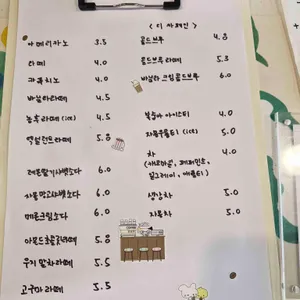 아메리카노 3.5
라떼 4.0
카푸치노 4.0
바닐라라떼 4.5
농후라떼 (ice) 4.5
5.0
레몬딸기사벳소다 6.0
자몽망고사벳소다 6.0
메론크림소다 6.0
아몬드초콜릿라떼 5.0
우지말차라떼 5.5
고구마라떼 5.5
(디카페인)
콜드브루 4.8
콜드브루라떼 5.3
바닐라크림콜드브루 6.0
복숭아 아이스티 4.0
자몽우롱티 (ice) 5.0
차 4.0
(캐모마일, 페퍼민트,
얼그레이, 애플티)
생강차 5.0
자몽차 5.0